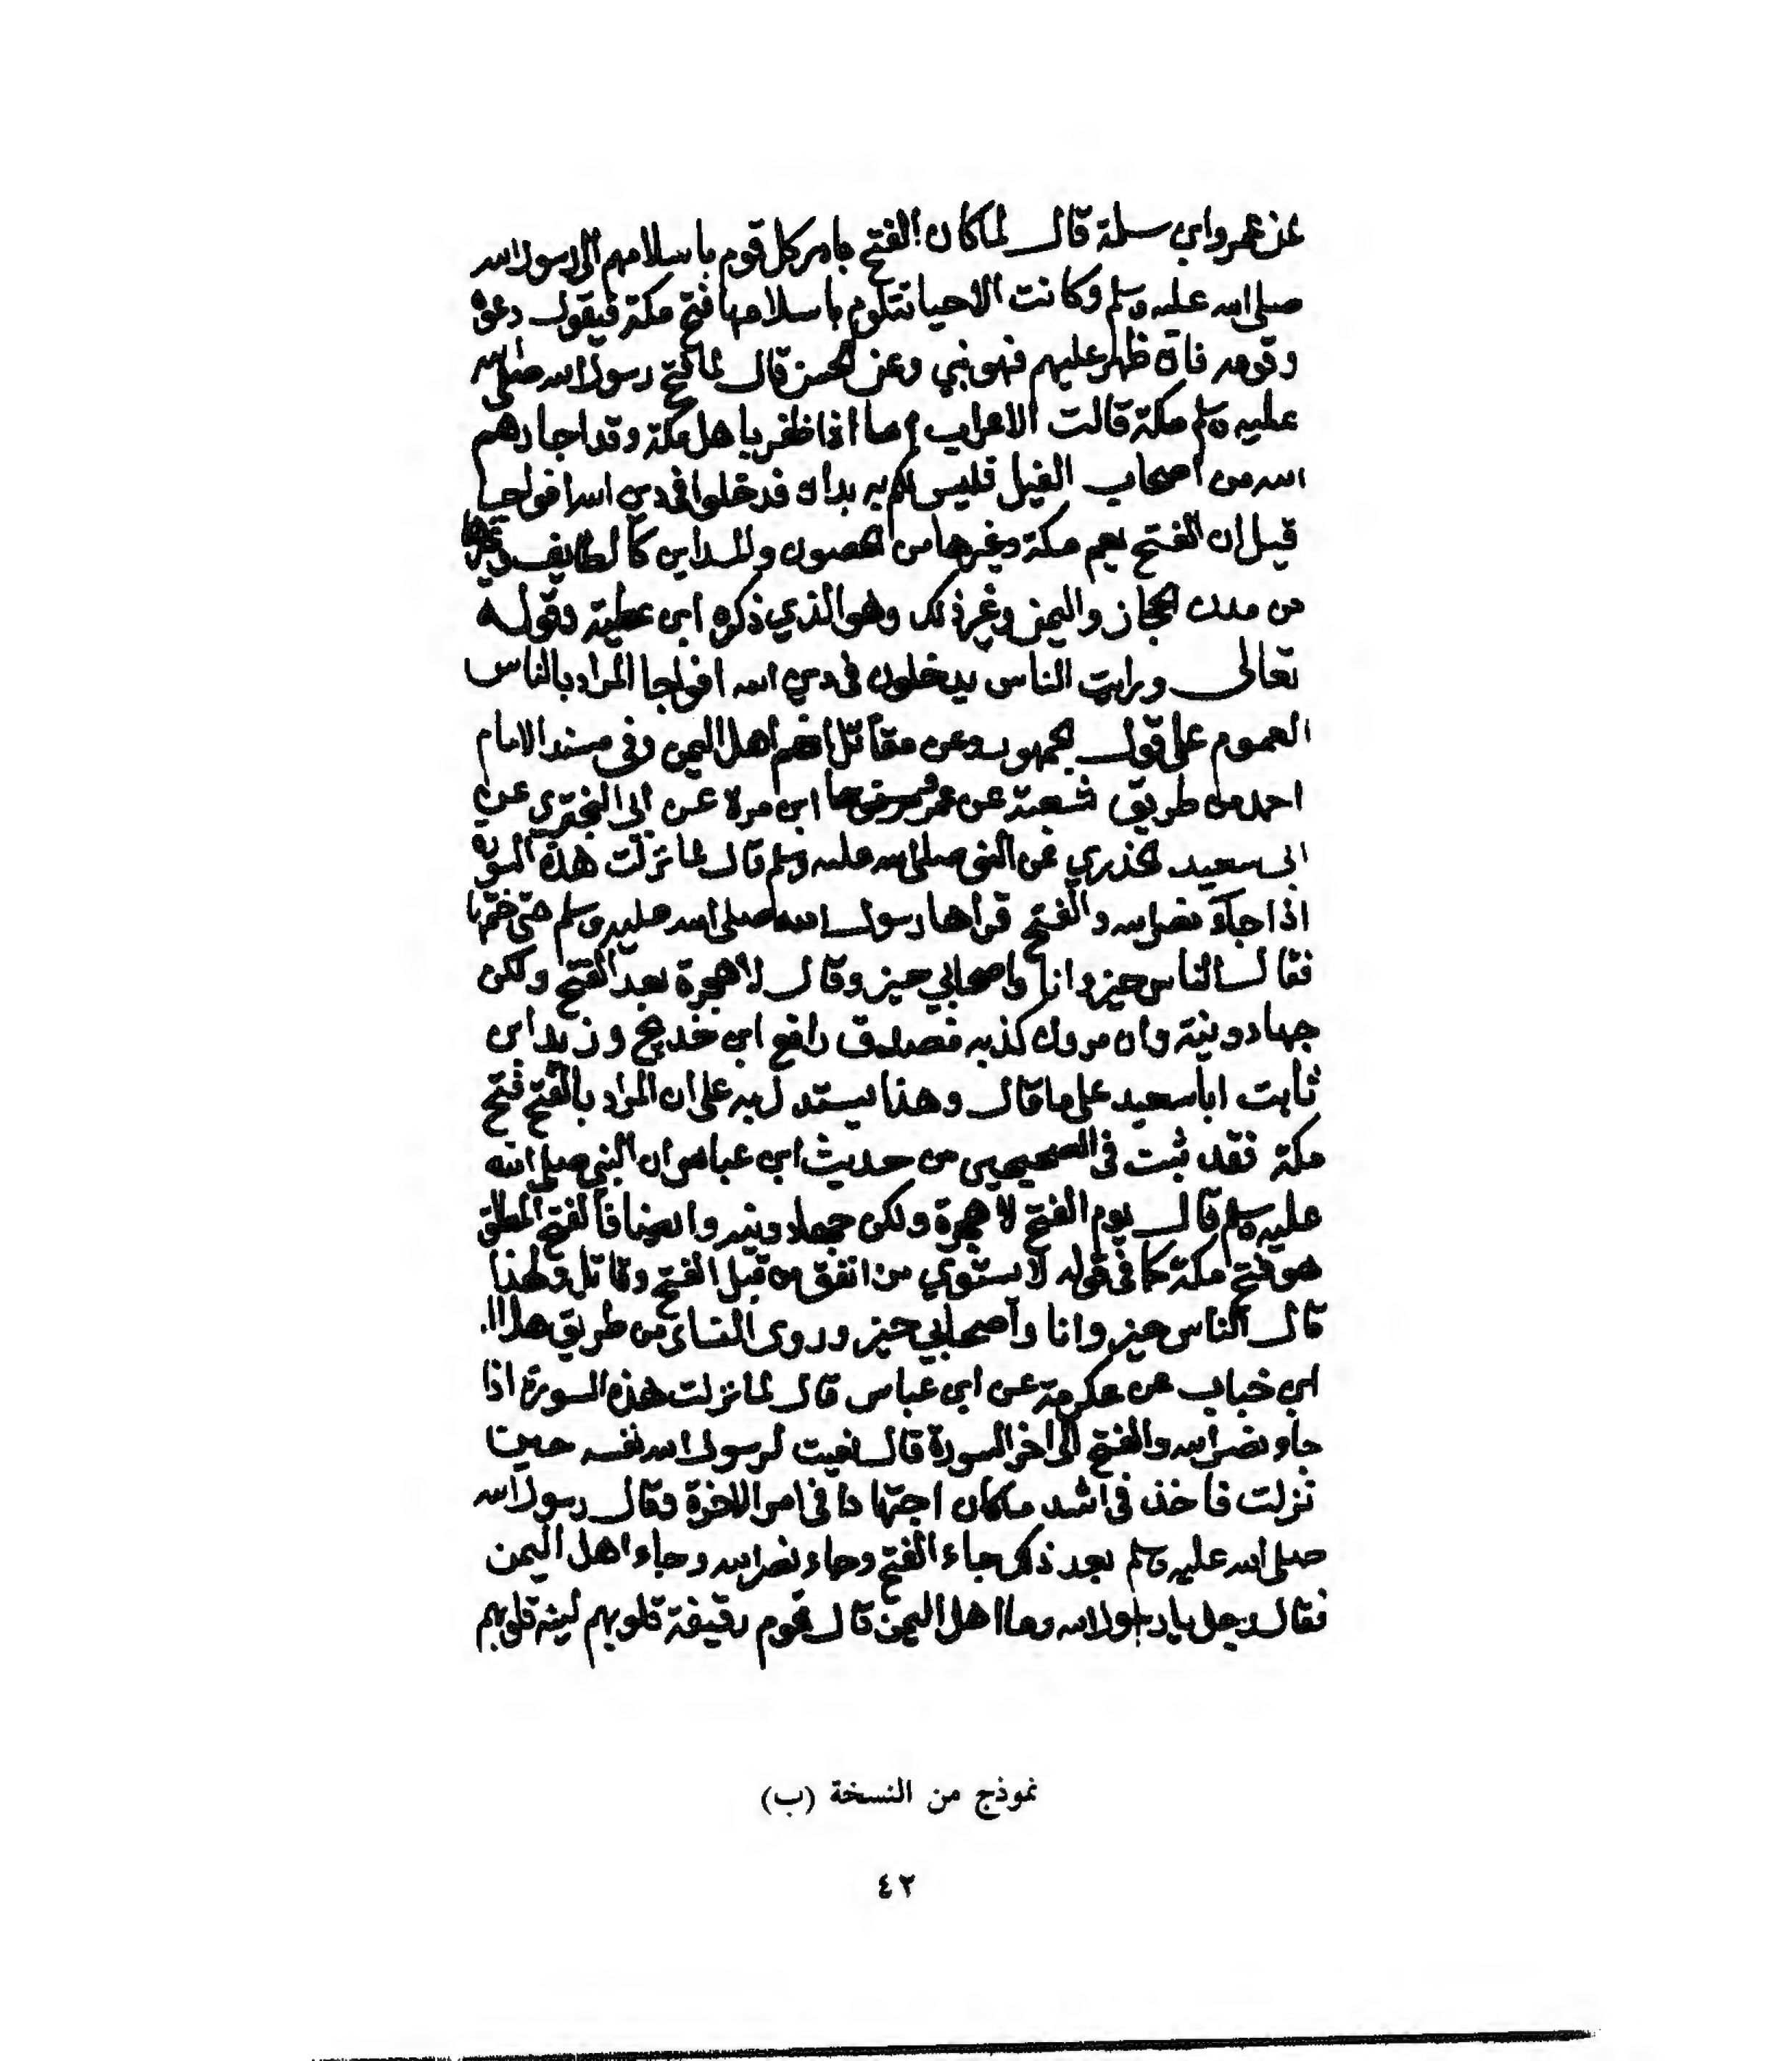 عن عمرو ابن سلمة قال لما كان الفتح بادر كل قوم باسلامهم الى رسول الله
صلى الله عليه وسلم وكانت الاحيا تتلوم باسلامها فتح مكة فيقول دعوه
وقومه فان ظهر عليهم فهو نبي وعن الحسن قال لما فتح رسول الله صلى الله
عليه وسلم مكة قالت الاعراب اما اذا ظفر باهل مكة وقد اجارهم
الله من اصحاب الفيل فليس لكم به يدان فدخلوا في دين الله افواجا
قيل ان الفتح يعم مكة وغيرها من الحصون والمداين كالطايف وغيرها
من مدن الحجاز واليمن وغير ذلك وهو الذي ذكره ابن عطية وقوله
تعالى ورايت الناس يدخلون في دين الله افواجا المراد بالناس
العموم على قول الجمهور وعن مقاتل انهم اهل اليمن وفي مسند الامام
احمد من طريق شعبة عن عمرو ابن مرة عن ابي البختري عن
ابي سعيد الخذري عن النبي صلى الله عليه وسلم قال لما نزلت هذه السورة
اذا جاء نصر الله والفتح قراها رسول الله صلى الله عليه وسلم حتى ختمها
فقال الناس حيز وانا واصحابي حيز وقال لا هجرة بعد الفتح ولكن
جهاد ونية وان مروان كذبه فصدق رافع ابن خديج وزيد ابن
ثابت ابا سعيد على ما قال وهذا يستدل به على ان المراد بالفتح فتح
مكة فقد ثبت في الصحيحين من حديث ابن عباس ان النبي صلى الله
عليه وسلم قال يوم الفتح لا هجرة ولكن جهاد ونيه وايضا فالفتح المطلق
هو فتح مكة كما في قوله لا يستوي من انفق من قبل الفتح وقاتل ولهذا
قال الناس حيز وانا واصحابي حيز وروى النساى من طريق هلال
ابن خباب عن عكرمة عن ابن عباس قال لما نزلت هذه السورة اذا
جاء نصر الله والفتح الى اخر السورة قال نعيت لرسول الله نفسه حين
نزلت فاخذ في اشد ما كان اجتهادا في امر الاخرة وقال رسول الله
صلى الله عليه وسلم بعد ذلك جاء الفتح وجاء نصر الله وجاء اهل اليمن
فقال رجل يا رسول الله وما اهل اليمن قال قوم رقيقة قلوبهم لينة قلوبهم
نموذج من النسخة (ب)
٤٢